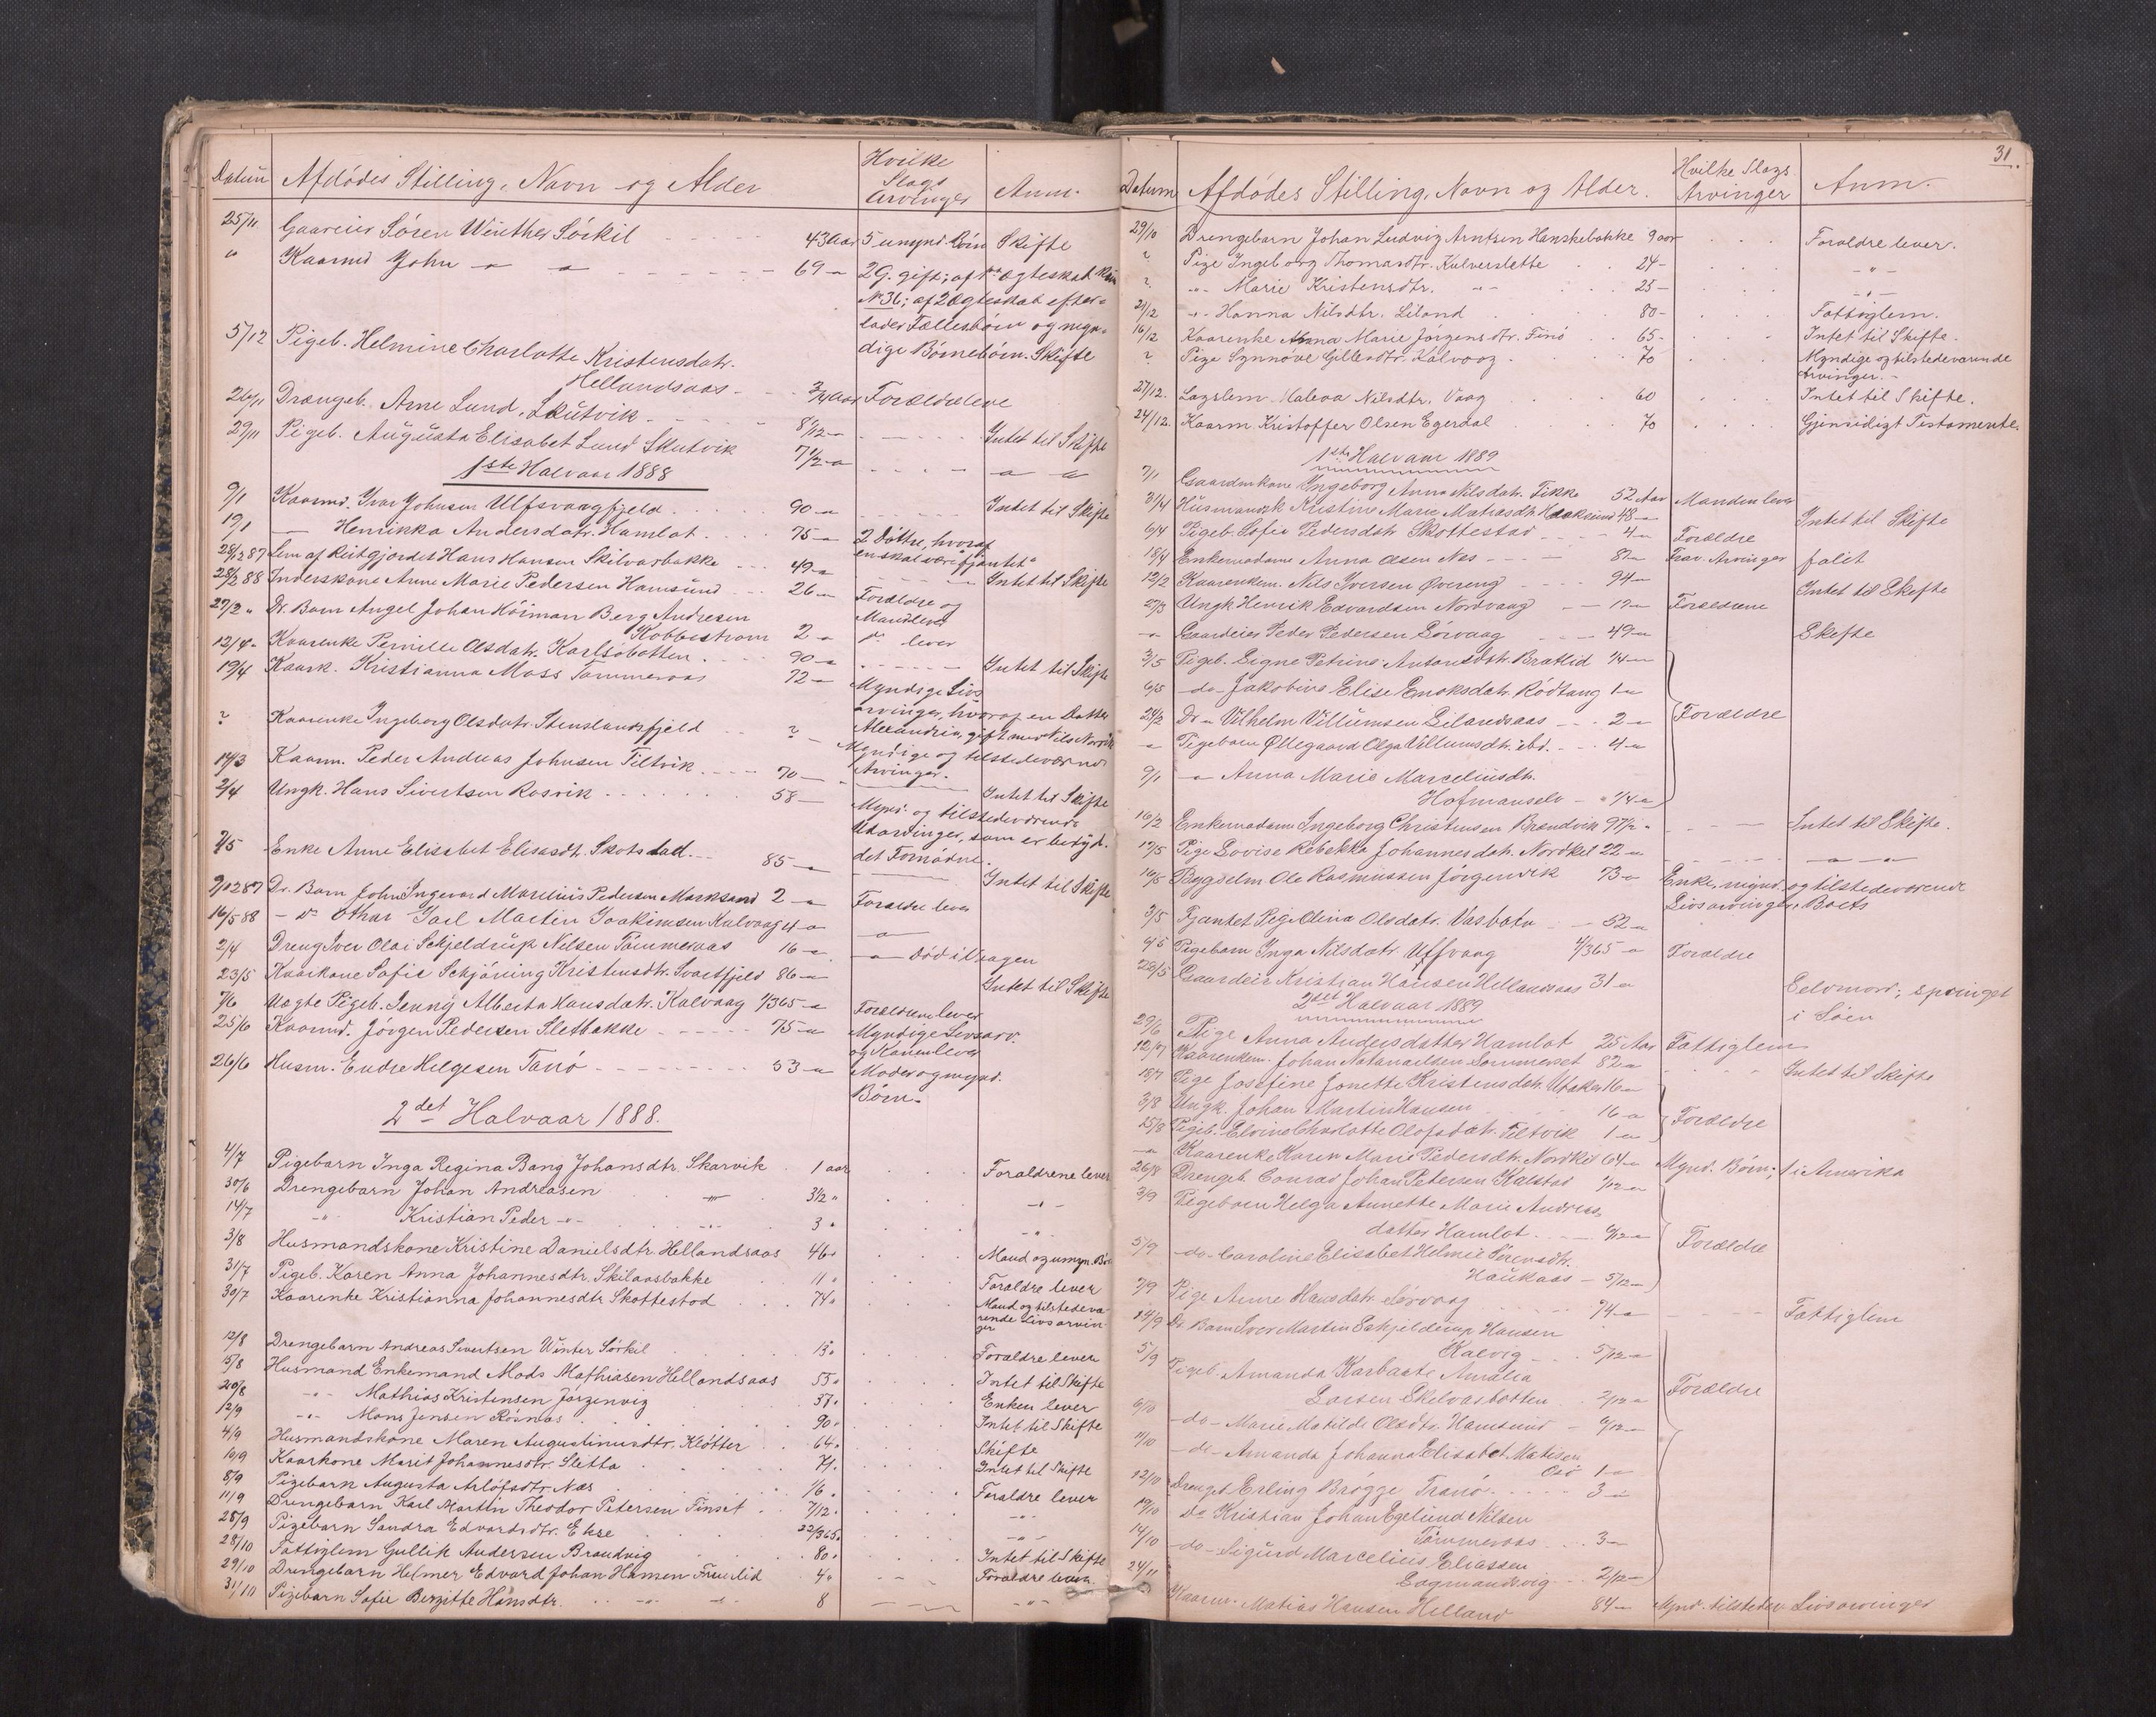 Datum Afdödes Stilling, Navn og Alder Hvilke Slags Arvinger Anm.
25/11 Gaareier Sören Winther Sörkil 43 Aar 5 umynd. Börn Skifte
" Kaarmd John -"- -"- 69 -"- 2 G. gift; af 1ste Ægteskab
No 36; af 2 Ægteskab efter-
lader Fællesbörn og myn-
dige Börnebörn. Skifte
5/12 Pigeb. Helmine Charlotte Kristensdatr.
Hellandsaas 3/4 Aar Forældre leve
26/11 Drængeb. Arne Lund, Skutvik 8/12 -"-
29/11 Pigeb. Augusta Elisabet Lund Skutvik 7 1/2 -"- Intet til Skifte
1ste Halvaar 1888 -"- -"-
9/1 Kaarmd. Ivar Johnsen Ulfsvaagfjeld 90 -"- Intet til Skifte
19/1 — Henrikka Andersdatr. Hamlot 75 -"- 2 Döttre, hvoraf
en skal være "fjantet"
28/12 87 Lem af Reitgjordet Hans Hansen Skilvasbakke 49 -"- Intet til Skifte
28/2 88 Inderskone Anne Marie Pedersen Hamsund 26 -"- Forældre og
Mand lever
27/2 " Dr. Barn Angel Johan Höiman Berg Andresen
Kobbestrøm 2 -"- do lever
12/4 - Kaarenke Pernille Olsdatr. Karlsöbotten 90 -"- Intet til Skifte
19/4 Kaark. Kristianna Moss Tømmeraas 72 -"- Myndige Livs
arvinger, hvoraf en Datter
Alexandria, gift med Nils
? Kaarenke Ingeborg Olsdatr. Stenslandsfjeld ? - Myndige og tilstedeværende
Arvinger.
14/3 Kaarm. Peder Andreas Johnsen Tiltvik 70 - Intet til Skifte
2/4 Ungk. Hans Sivertsen Rosvik 58 - Mynd. og tilstedeværende
Udarvinger, som er betyd.
det Fornødne.
2/5 Enke Anne Elisabet Elisasdtr. Skotstad 85 -"- Intet til Skifte
9/12 87 Dr. Barn John Ingevard Marelius Pedersen Marksund 2 -"- Forældre lever
16/5 88 - do Othar Jarl Martin Joakimsen Kalvaag 4 -"- -"-
2/4 Dreng Iver Olai Schjeldrup Nilsen Tömmeraas 16 -"- -"- Död i Dragen
23/5 Kaarkone Sofie Schjöning Kristensdtr. Svartfjeld 86 -"- Intet til Skifte
7/6 Uægte Pigeb. Jenny Alberta Hansdatr. Kalvaag 1/365 -"- Forældrene lever
25/6 Kaarmd. Jörgen Pedersen Sletbakke 75 -"- Myndige Livsarv.
og Konen lever
26/6 Husm. Endre Helgesen Tanö 53 -"- Moder og mynd.
Börn.
2det Halvaar 1888.
4/7 Pigebarn Inga Regina Bang Johansdtr. Skarvik 1 aar Forældrene lever
30/6 Drengebarn Johan Andreasen -"- 3 1/2 " -"-
14/7 -"- Kristian Peder -"- -"- 3 " -"-
3/8 Husmandskone Kristine Danielsdtr. Hellandsaas 46 " Mand og umyn. Bör
31/7 Pigeb. Karen Anna Johannesdtr. Skilaasbakke 11 " Forældre lever
30/7 Kaarenke Kristianna Johannesdtr Skottestad 74 " Mand og tilstedevæ-
rende Livsarvin-
ger
12/8 Drengebarn Andreas Sivertsen Winter Sörkil 13 " Forældre lever
15/8 Husmand Enkemand Mads Mathiasen Hellandsaas 55 " Intet til Skifte
20/8 -"- Mathias Kristensen Jörgenvig 37 " Enken lever
12/9 -"- Mons Jensen Rösnæs 90 " Intet til Skifte
4/9 Husmandskone Maren Augustinusdtr. Klötter 64 " Skifte
10/9 Kaarkone Marit Johannesdtr. Sletta 71 " Intet til Skifte
8/9 Pigebarn Augusta Arlöfsdtr. Næs 16 " Forældre lever
11/9 Drengebarn Karl Martin Theodor Petersen Finset 7/12 " -"-
28/9 Pigebarn Sandra Edvardsdtr. Ekse 22/365 " -"-
28/10 Fattiglem Gullik Andersen Brandvig 80 " Intet til Skifte
29/10 Drengebarn Helmer Edvard Johan Hansen Fineslid 4 " Forældre lever.
31/10 Pigebarn Sofie Bergitte Hansdtr. -"- -"- 8 -"-
31.
Datum Afdödes Stilling, Navn og Alder. Hvilke Slags Arvinger Anm.
29/10 Drengebarn Johan Ludvig Arntsen Hanskebakke 9 aar Foraldre lever.
? Pige Ingeborg Thomasdtr. Kulverslette 24 - -"-
? -"- Marie Kristensdtr. -"- 25 - -"-
21/12 -"- Hanna Nilsdtr. Liland 80 - Fattiglem.
16/12 Kaarenke Anna Marie Jörgensdtr. Finö 65 - Intet til Skifte.
? Pige Synnöve Gillesdtr. Kalvaag 70 Myndige og tilstedeværende
Arvinger.-
27/12. Lægslem Maleva Nilsdtr. Vaag 60 Intet til Skifte.
24/12. Kaarm. Kristoffer Olsen Egerdal 70 Gjensidigt Testamente.
1ste Halvaar 1889
7/1 Gaardmkone Ingeborg Anna Nilsdatr. Fikke 52 Aar Manden lever
31/4 Husmandsk Kristine Marie Matiasdtr. 48 -"- Intet til Skifte
6/4 Pigeb. Sofie Pedersdtr Skottestad 4 -"- Forældre
18/4 Enkemadame Anna Olsen Nes 87 -"- Frav. Arvinger falit
12/2 Kaarenkem. Nils Iversen Øvereng 94 - Intet til Skifte
27/3 Ungk Henrik Edvardsen Nordvaag 19 -"- Forældrene
-"- Gaardeier Peder Pedersen Sörvaag 49 -"- Skifte
3/5 Pigeb. Signe Petrine Antonsdtr. Bratlid 1/4 -"-
6/5 -do- Jakobine Elise Enoksdatr. Rödtang 1 -"-
24/2 Dr -"- Vilhelm Villumsen Eilandsaas 2 -"- Forældre
-"- Pigebarn Øllegaard Olga Villumsdtr. ibd. 4 -"-
9/1 -"- Anna Marie Marceliusdtr.
Hofmanselv 1/4 -"-
16/2 Enkemadam Ingeborg Christensen Brandvik 97 1/2 " Intet til Skifte.
17/5 Pige Lovise Rebekka Johannesdatr. Nordkil 22 -"- -"- -"-
16/5 Bygselm Ole Rasmussen Jörgenvik 73 -"- Enke, mynd. og tilstedeværende
Livsarvinger, Boets
3/5 Fjantet Pige Elina Olsdatr. Vasbotn 52 -"-
6/5 Pigebarn Inga Nilsdatr. Ulfsvaag 4/365 -"- Forældre
28/5 Gaardeier Kristian Hansen Hellandsaas 31 -"- Selvmord; sprunget
i Söen
2det Halvaar 1889
29/6 Pige Anna Andersdatter Hamlot 25 Aar Fattiglem
12/7 Kaarenkem. Johan Natanaelsen Sommerset 82 -"- Intet til Skifte
18/7 Pige Josefine Jonette Kristensdtr. Utaker 16 -"-
3/8 Ungk. Johan Martin Hansen 16 -"- Forældre
25/8 Pigeb. Elvine Charlotte Olofsdatr. Tiltvik 1 -"-
-"- Kaarenke Karen Marie Pedersdtr. Nordkil 64 -"- Mynd. Börn; 1 i Amerika
26/8 Drengeb. Conrad Johan Petersen Kalstad 1/12 -"-
3/9 Pigebarn Helga Annette Marie Andreas
datter Hamlot 9/12 -"- Forældre
5/9 -do- Caroline Elisabet Helmie Sörensdtr.
Haukaas 5/12 -"-
7/9 Pige Anne Hansdatr. Sørvaag 74 -"- Fattiglem
14/9 Dr. Barn Iver Martin Schjelderup Hansen
Kalvig 5/12 -"-
5/9 Pigeb. Amanda Karbaate Amalia
Larsen Skilvasbotten 2/12 -"- Forældre
6/10 -do- Marie Matilde Olsdtr. Hamsund 9/12 -"-
11/10 -do- Amanda Johanna Elisabet Matisen
1 -"-
12/10 Drengeb. Erling Brögge Tranö 3 -"-
19/10 do Kristian Johan Egelund Nilsen
Tömmeraas 3 -"-
14/10 -do- Sigurd Marcelius Eliassen
Dagmansvig 2/12 -"-
24/11 Kaarm. Matias Hansen Helland 84 -"- Mynd. tilstedev. Livsarvinger